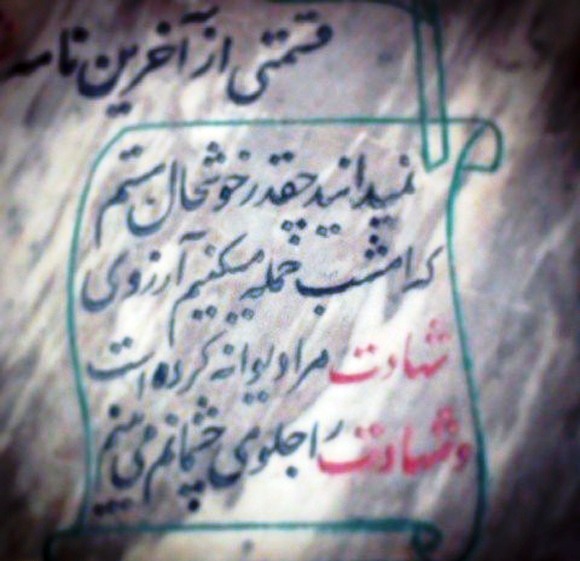 قسمتی از آخرین نامه
نمیدانید چقدر خوشحال هستم
که امشب حمله میکنیم آرزوی
شهادت مرا دیوانه کرده است
و شهادت را جلوی چشمانم می بینم